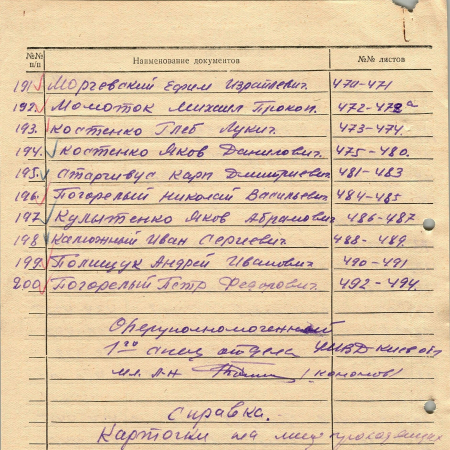 №№ п/п Наименование документов №№ листов
191. Моргевский Ефим Израилевич. 470-471
192. Момоток Михаил Прокоп. 472-472а
193. Костенко Глеб Лукич 473-474
194. Костенко Яков Данилович. 475-480.
195. Карп Дмитриевич 481-483
196. Погорелый Николай Васильевич 484-485
197. Кулыженко Яков Абрамович 486-487
198 Калюжный Иван Сергеевич. 488-489
199. Полищук Андрей Иванович. 490-491
200 Погорелый Петр Федорович. 492-494.
Оперуполномоченный
1го спец отдела УМВД
мл. л-н (Кононов)
Справка.
Карточки на